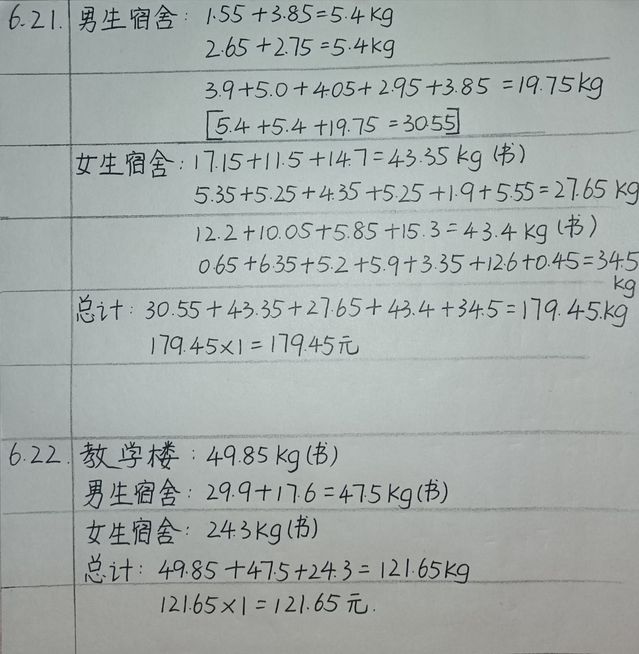 6.21. 男生宿舍: 1.55+3.85=5.4kg
2.65+2.75=5.4kg
3.9+5.0+4.05+2.95+3.85=19.75kg
[5.4+5.4+19.75=30.55]
女生宿舍: 17.15+11.5+14.7=43.35kg(书)
5.35+5.25+4.35+5.25+1.9+5.55=27.65kg
12.2+10.05+5.85+15.3=43.4kg(书)
0.65+6.35+5.2+5.9+3.35+12.6+0.45=34.5
kg
总计: 30.55+43.35+27.65+43.4+34.5=179.45.kg
179.45×1=179.45元
6.22. 教学楼: 49.85kg(书)
男生宿舍: 29.9+17.6=47.5kg(书)
女生宿舍: 24.3kg(书)
总计: 49.85+47.5+24.3=121.65kg
121.65×1=121.65元.